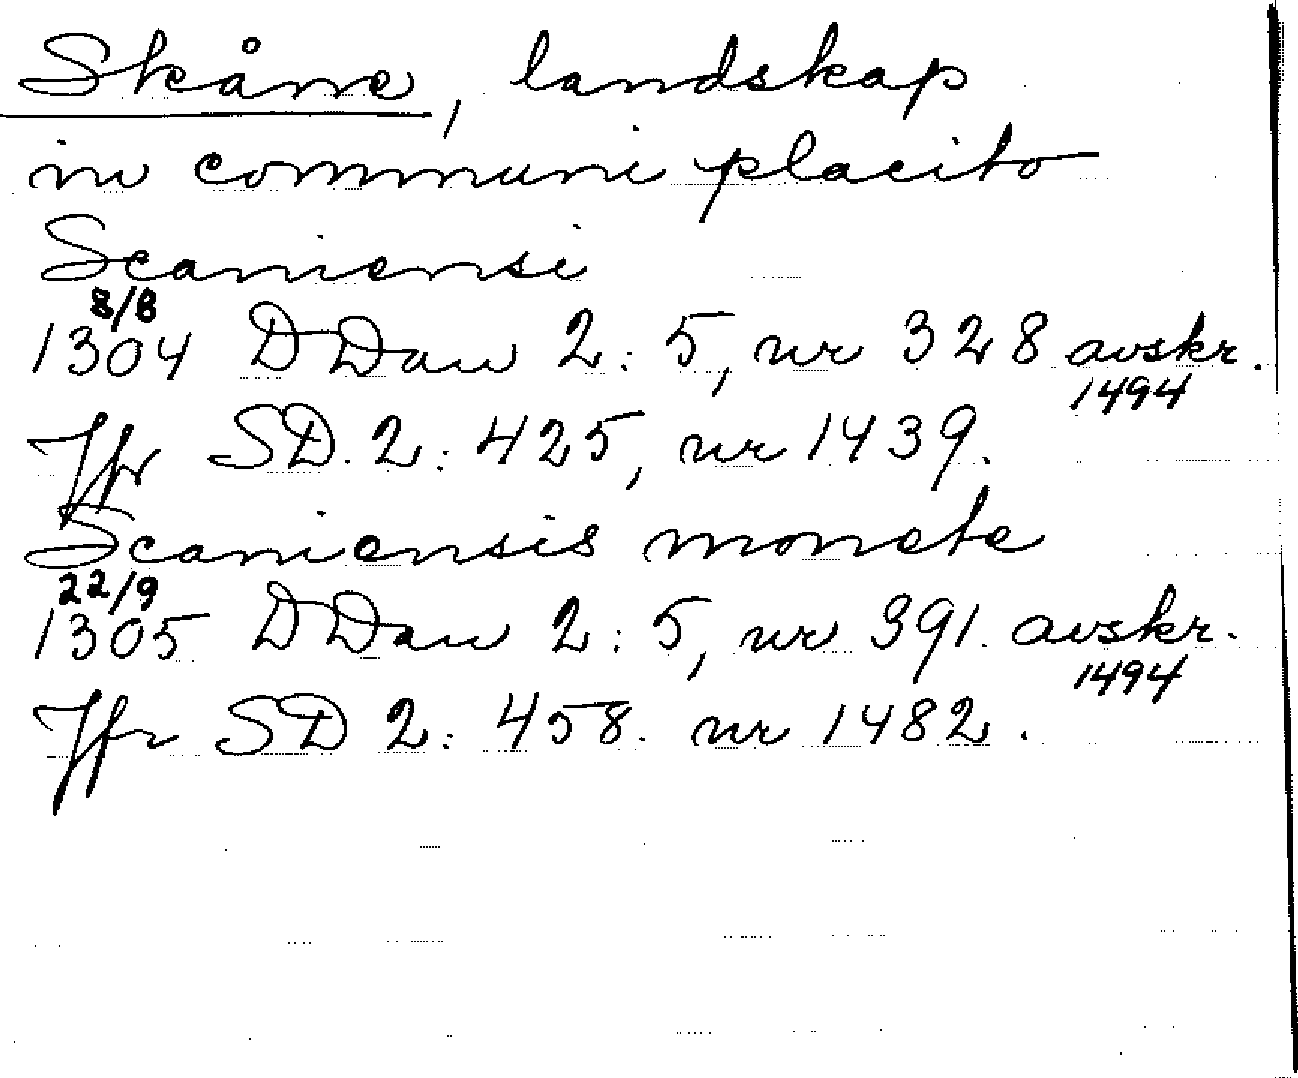 Skåne, landskap
in communi placito
Scaniensi
8/8
1304 DDan 2:5, nr 328 avskr.
1494
Jfr SD 2:425, nr 1439.
Scaniensis monete
22/9
1305 DDan 2:5, nr 391. avskr.
1494
Jfr SD 2:458. nr 1482.